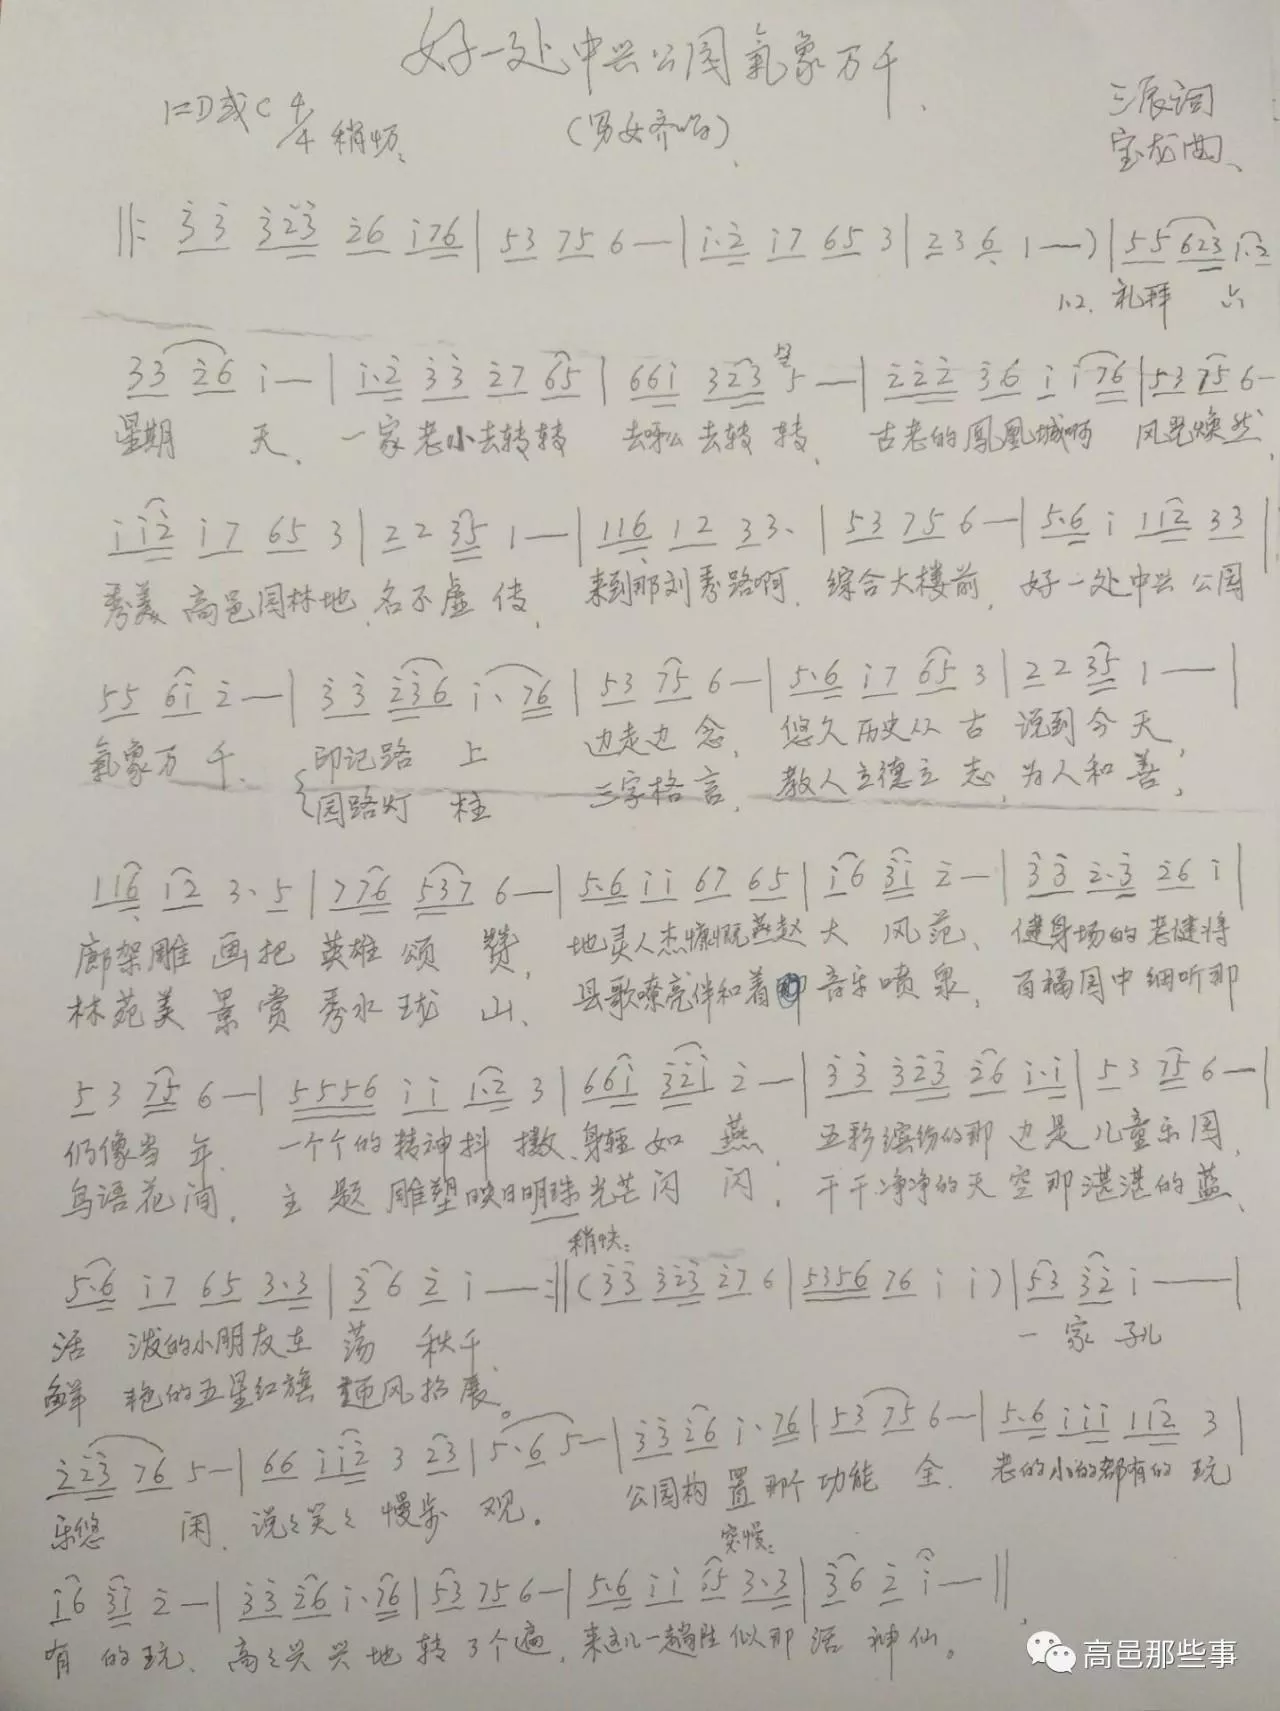 好一处中兴公园氣象万千
1=D或C 4/4 稍慢
(男女齐唱)
三辰词
宝龙曲
‖: 3̇3̇ 3̇2̇3̇ 2̇6 1̇76 | 53 75 6— | 1̇·2̇ 1̇7 65 3 | 2 3 6 1 —) | 55 623 1·2
1.2. 礼拜 六
33 2̇6 1̇— | 1̇·2̇ 3̇3̇ 2̇7 65 | 661̇ 323 5— | 2̇2̇2̇ 3̇6 1̇ 1̇76 | 53 75 6-
星期 天、 一家老小去转转 去呀么去转转, 古老的鳳凰城啊 风光焕然,
1̇1̇2̇ 1̇7 65 3 | 22 35 1— | 116 12 33· | 53 75 6— | 5·6 1̇ 112 33 |
秀美高邑园林地,名不虚传, 来到那刘秀路啊, 综合大楼前, 好一处中兴公园
55 61̇ 2̇— | 3̇3̇ 2̇3̇6 1̇·76 | 53 75 6— | 5·6 1̇7 65 3 | 22 35 1—|
氣象万千、 印记路上 边走边念, 悠久历史从古说到今天,
园路灯柱 三字格言, 教人立德立志,为人和善,
116 12 3·5 | 776 537 6— | 5·6 1̇1̇ 67 65 | 1̇6 3̇1̇ 2̇— | 3̇3̇ 2̇·3̇ 2̇6 1̇ |
廊架雕画把英雄颂赞, 地灵人杰慷慨燕赵大风范、 健身场的老健将
林苑美景赏秀水珑山、 县歌嘹亮伴和着那音乐喷泉, 百福园中细听那
53 75 6—| 5556 1̇1̇ 1̇·2̇ 3 | 661̇ 3̇2̇1̇ 2̇— | 3̇3̇ 3̇2̇3̇ 2̇6 1̇·1̇ | 53 75 6—|
仍像当年, 一个个的精神抖擞、身轻如燕, 五彩缤纷的那边是儿童乐园,
鸟语花间, 主题雕塑映日明珠光芒闪闪, 干干净净的天空那湛湛的蓝、
稍快:
5·6 1̇7 65 3·3 | 3̇6 2̇ 1̇ —:‖ (3̇3̇ 3̇2̇3̇ 2̇7 6 | 5356 76 1̇ 1̇) | 53 3̇2̇ 1̇ ——|
活泼的小朋友在荡秋千, 一家子儿
鲜艳的五星红旗迎风招展。
2̇2̇3̇ 76 5—| 66 1̇1̇2̇ 3 23 | 5·6 5— | 3̇3̇ 2̇6 1̇·76 | 53 75 6— | 5·6 1̇1̇1̇ 112 3 |
乐悠闲, 说说笑笑慢步观。 公园构置那个功能全, 老的小的都有的玩
突慢:
1̇6 3̇1̇ 2̇—| 3̇3̇ 2̇6 1̇·76 | 53 75 6—| 5·6 1̇1̇ 1̇5 3·3 | 3̇6 2̇ 1̇ —‖
有的玩、 高高兴兴地转了个遍, 来这儿一趟胜似那活神仙。
高邑那些事